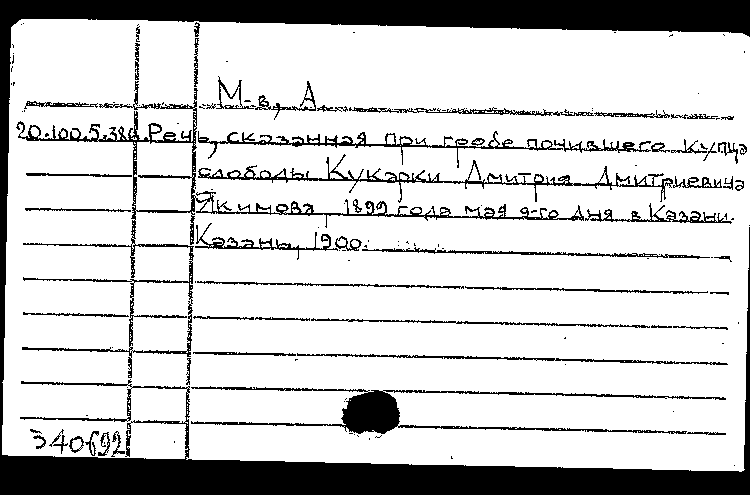 М-в, А.
20.100.5.386. Речь, сказанная при гробе почившего купца
слободы Кукарки Дмитрия Дмитриевича
Якимова, 1899 года мая 9-го дня в Казани.
Казань, 1900.
340692